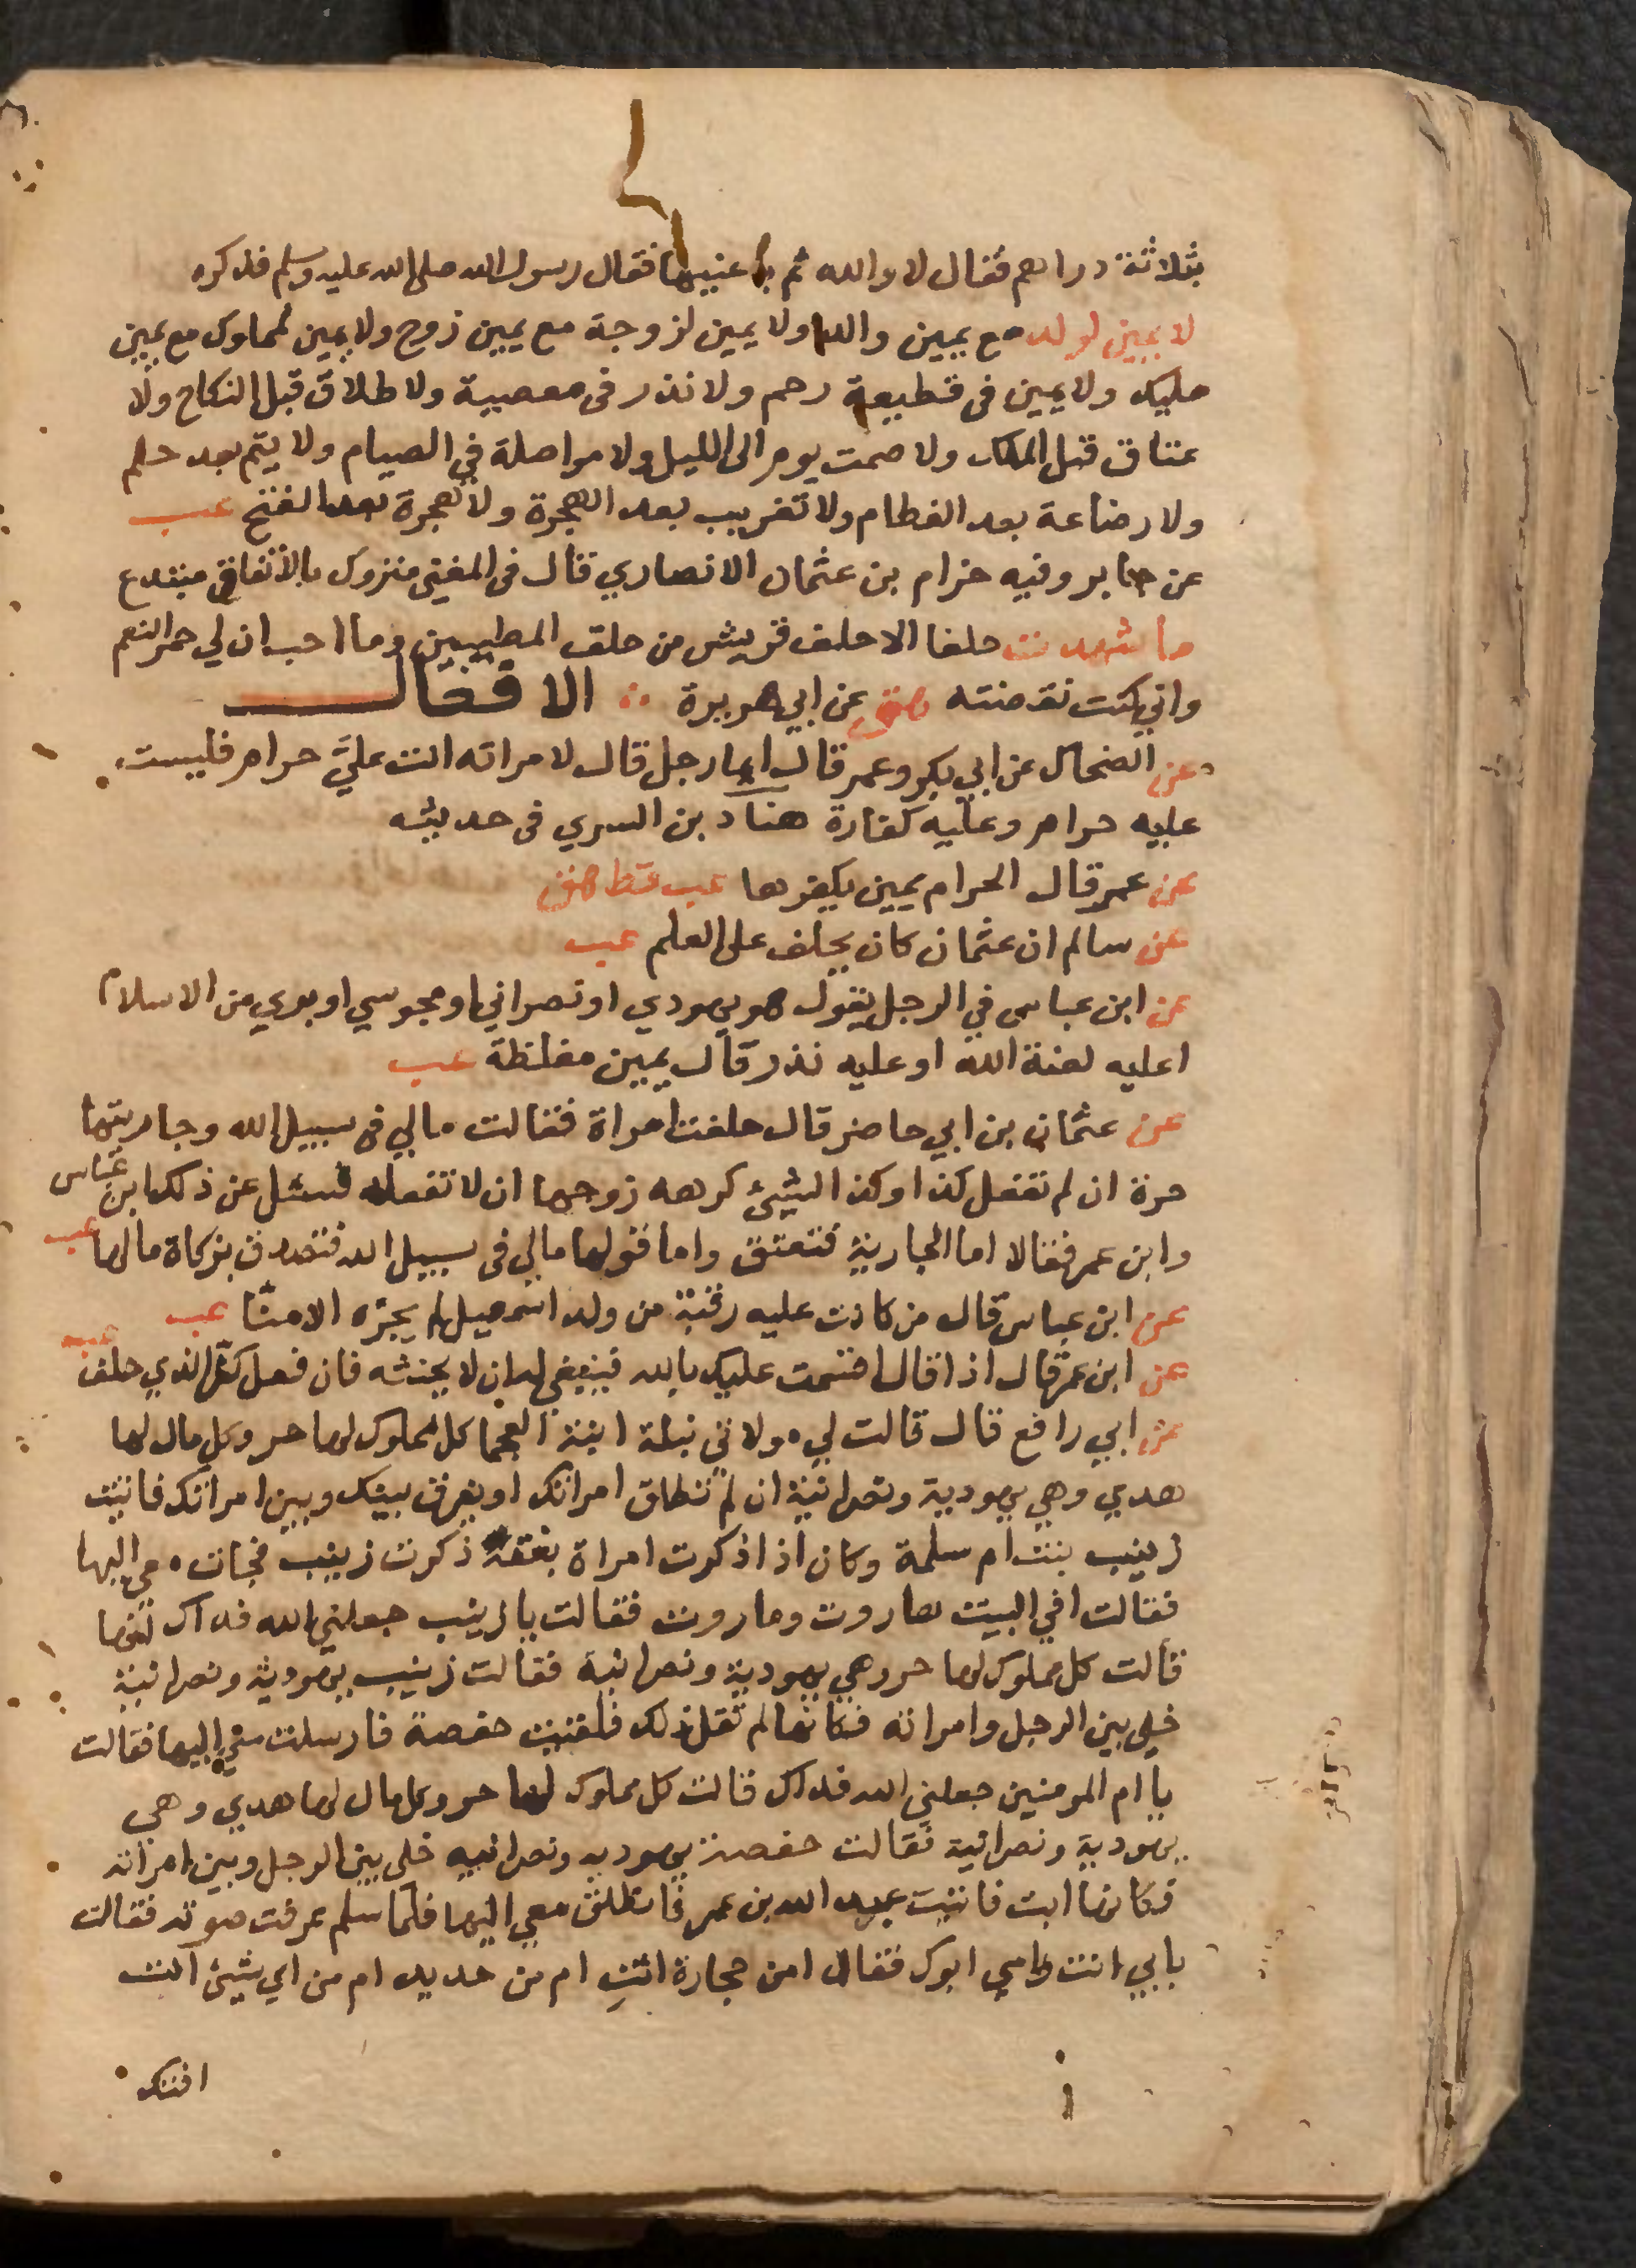 بثلاثة دراهم فقال لا والله ثم باعنيها فقال رسول الله صلى الله عليه وسلم فذكره
لا يمين لولد مع يمين والد ولا يمين لزوجة مع يمين زوج ولا يمين لمملوك مع يمين
مليك ولا يمين فى قطيعة رحم ولا نذر فى معصية ولا طلاق قبل النكاح ولا
عتاق قبل الملك ولا صمت يوم الى الليل ولا مواصلة في الصيام ولا يتم بعد حلم
ولا رضاعة بعد الفطام ولا تغريب بعد الهجرة ولا هجرة بعد الفتح عب
عن جابر وفيه حرام بن عثمان الانصاري قال فى المغنى متروك بالاتفاق مبتدع
ما شهدت حلفا الا حلف قريش من حلف المطيبين وما احب ان لي حمر النعم
واني كنت نقضته هق عن ابي هريرة الافعال
عن الضحاك عن ابي بكر وعمر قال ايما رجل قال لامراته انت عليَّ حرام فليست
عليه حرام وعليه كفارة هناد بن السري فى حديثه
عن عمر قال الحرام يمين يكفرها عب قط هق
عن سالم ان عثمان كان يحلف على العلم عب
عن ابن عباس في الرجل يقول هو يهودي او نصراني او مجوسي او بري من الاسلام
اعليه لعنة الله او عليه نذر قال يمين مغلظة عب
عن عثمان بن ابي حاضر قال حلفت امراة فقالت مالي فى سبيل الله وجاريتها
حرة ان لم تفعل كذا وكذا لشيئ كرهه زوجها ان لا تفعله فسئل عن ذلك ابن عباس
وابن عمر فقالا اما الجارية فتعتق واما قولها مالي فى سبيل الله فتتصدق بزكاة مالها عب
عن ابن عباس قال من كانت عليه رقبة من ولد اسمعيل لم يجزه الا منّا عب
عن ابن عمر قال اذا قال اقسمت عليك بالله فينبغي له ان لا يحنثه فان فعل كفّر الذي حلف عب
عن ابي رافع قال قالت لي مولاتي ليلة ابنة العجما كل مملوك لها حر وكل مال لها
هدي وهي يهودية ونصرانية ان لم تطلق امراتك او يفرق بينك وبين امراتك فاتيت
زينب بنت ام سلمة وكان اذا ذكرت امراة بفقه ذكرت زينب فجات معي اليها
فقالت افي البيت هاروت وماروت فقالت يا زينب جعلني الله فداك انها
قالت كل مملوك لها حر وهي يهودية ونصرانية فقالت زينب يهودية ونصرانية
خلي بين الرجل وامراته فكانها لم تقبل ذلك فلقيت حفصة فارسلت معي اليها فقالت
يا ام المومنين جعلني الله فداك قالت كل مملوك لها حر وكل مال لها هدي وهي
يهودية ونصرانية فقالت حفصة يهودية ونصرانيه خلي بين الرجل وبين امراته
فكانها ابت فاتيت عبد الله بن عمر فانطلق معي اليها فلما سلم عرفت صوته فقالت
بابي انت وامي ابوك فقال امن حجارة انتِ ام من حديد ام من اي شيئ انت
افتتك